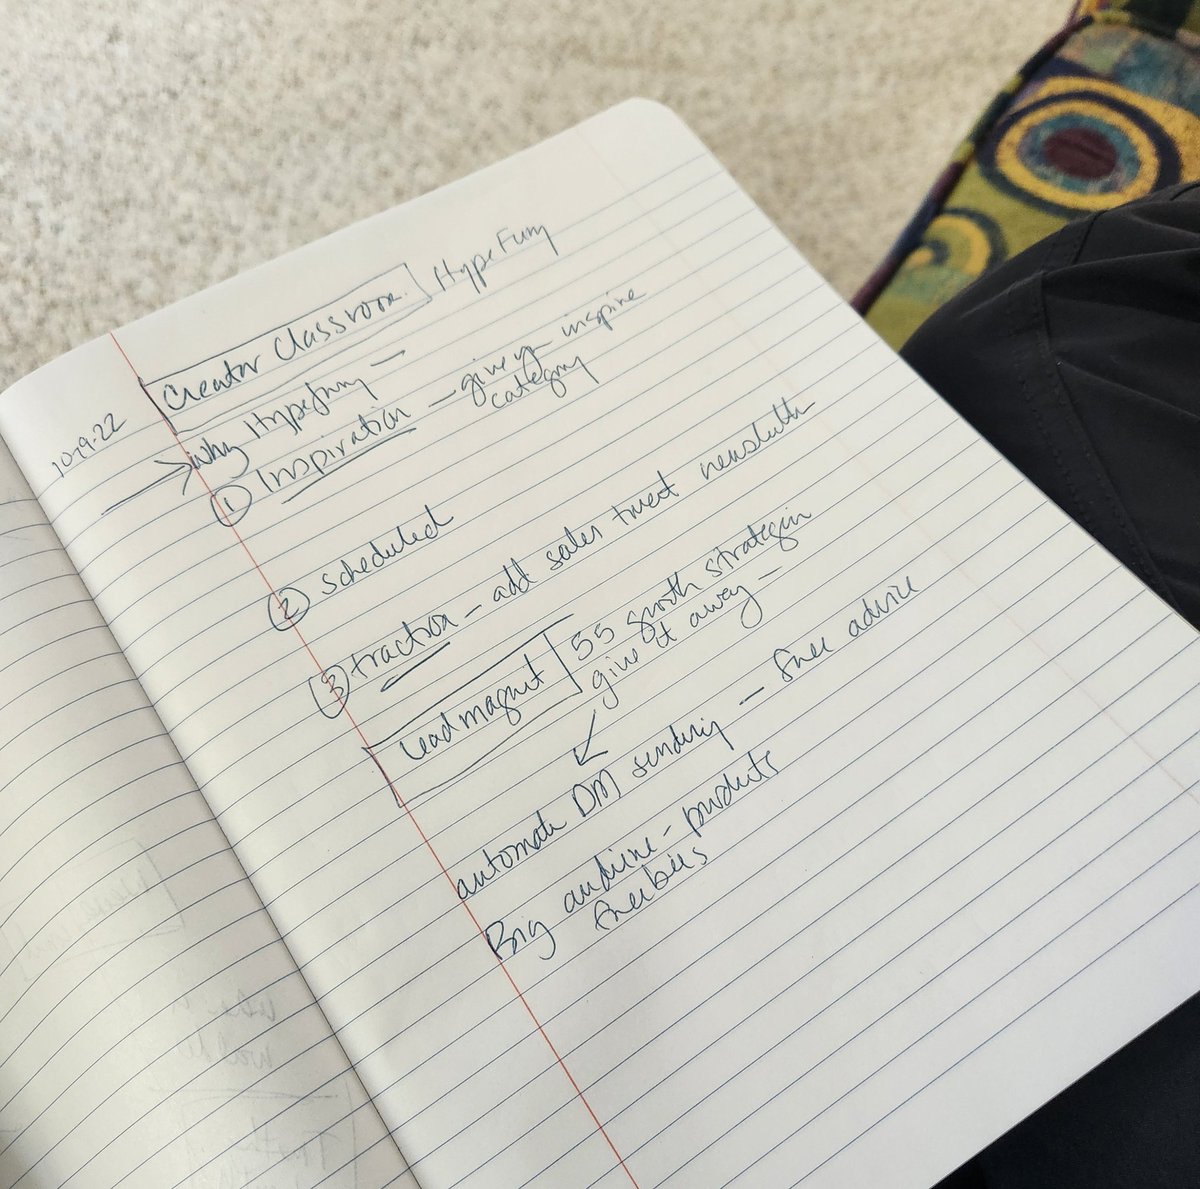 Creator Classroom. HypeFury
10-9-22
Why Hypefury —
① Inspiration — give inspire
category
② scheduled
③ traction — add sales tweet
Lead magnet 55 growth strategies
give it away —
automate DM sending — free advice
Big audience - products
freebies